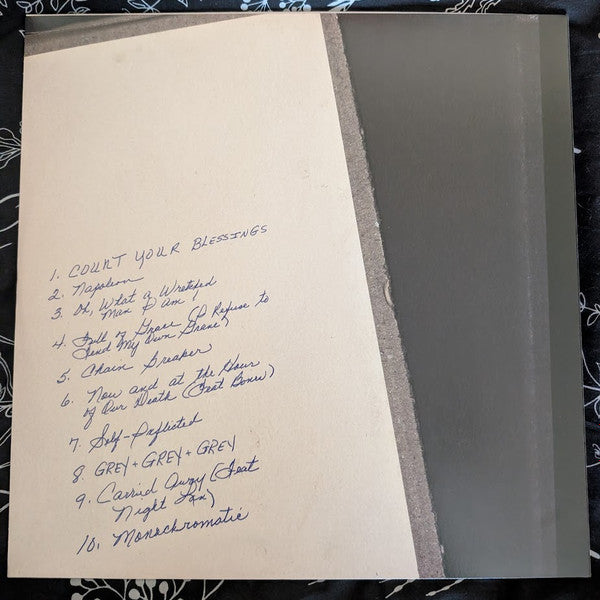 1. COUNT YOUR BLESSINGS
2. Napoleon
3. Oh, What a Wretched
Man I Am!
4. Full of Grace (I Refuse to
Tend My Own Grave)
5. Chain Breaker
6. Now and at the Hour
of Our Death (feat Bonev)
7. Self-Inflicted
8. GREY + GREY + GREY
9. Carried Away (feat
Night Lax)
10. Monochromatic